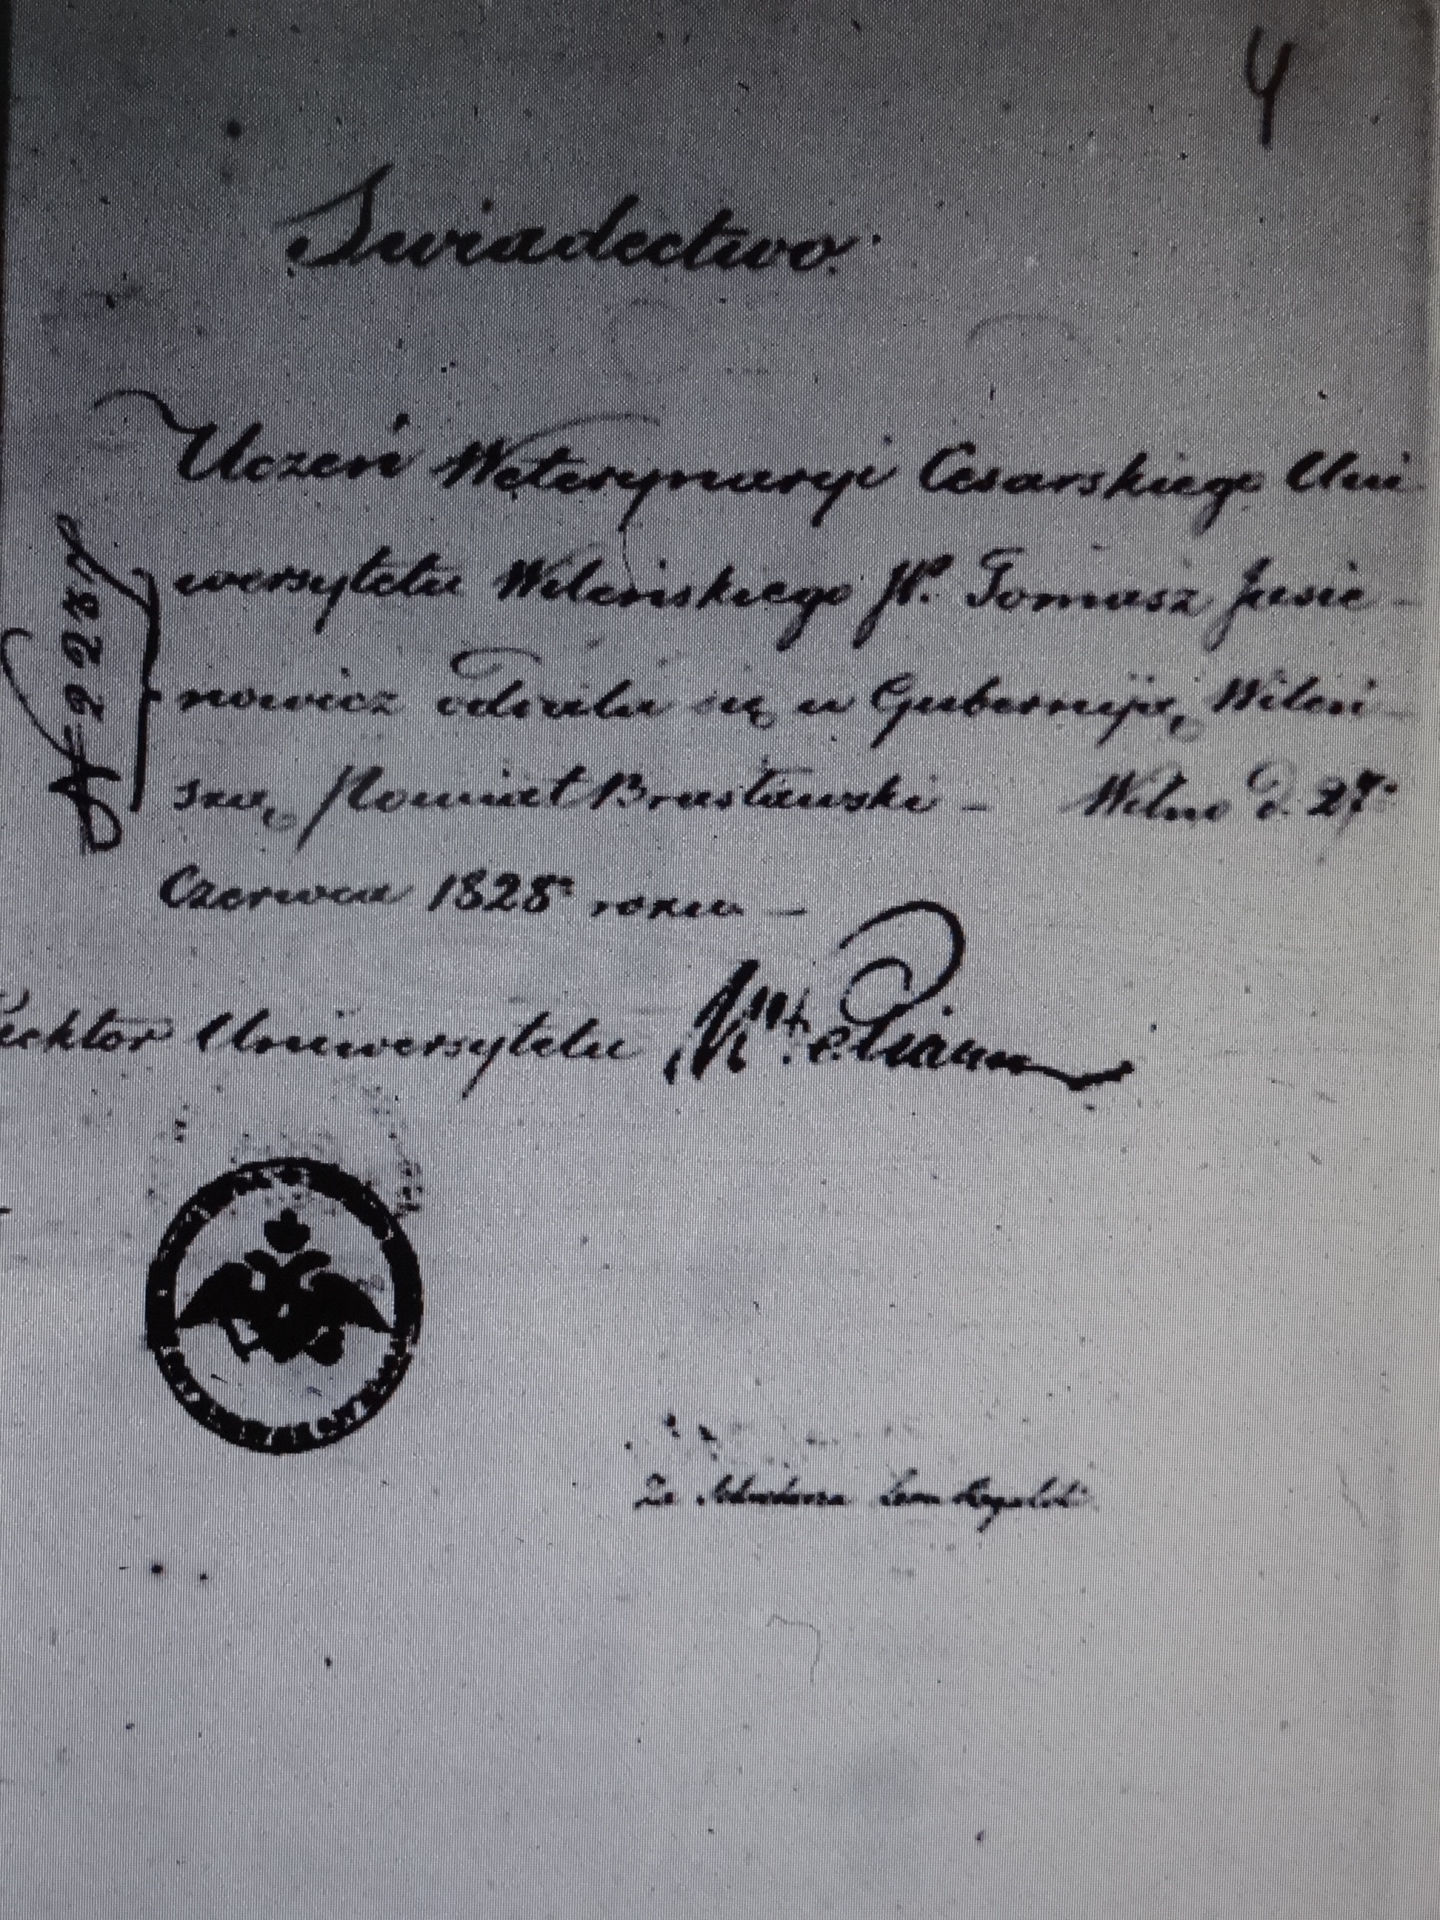 4
Swiadectwo.
Uczeń Weterynaryi Cesarskiego Uni-
wersytetu Wileńskiego JP. Tomasz Jasie-
nowicz oddala się w Guberniję Wileń-
szą, Powiat Brasławski - Wilno d. 27
Czerwca 1828 roku -
№ 2287
Rektor Uniwersytetu W. Pelikan
Za Sekretarza